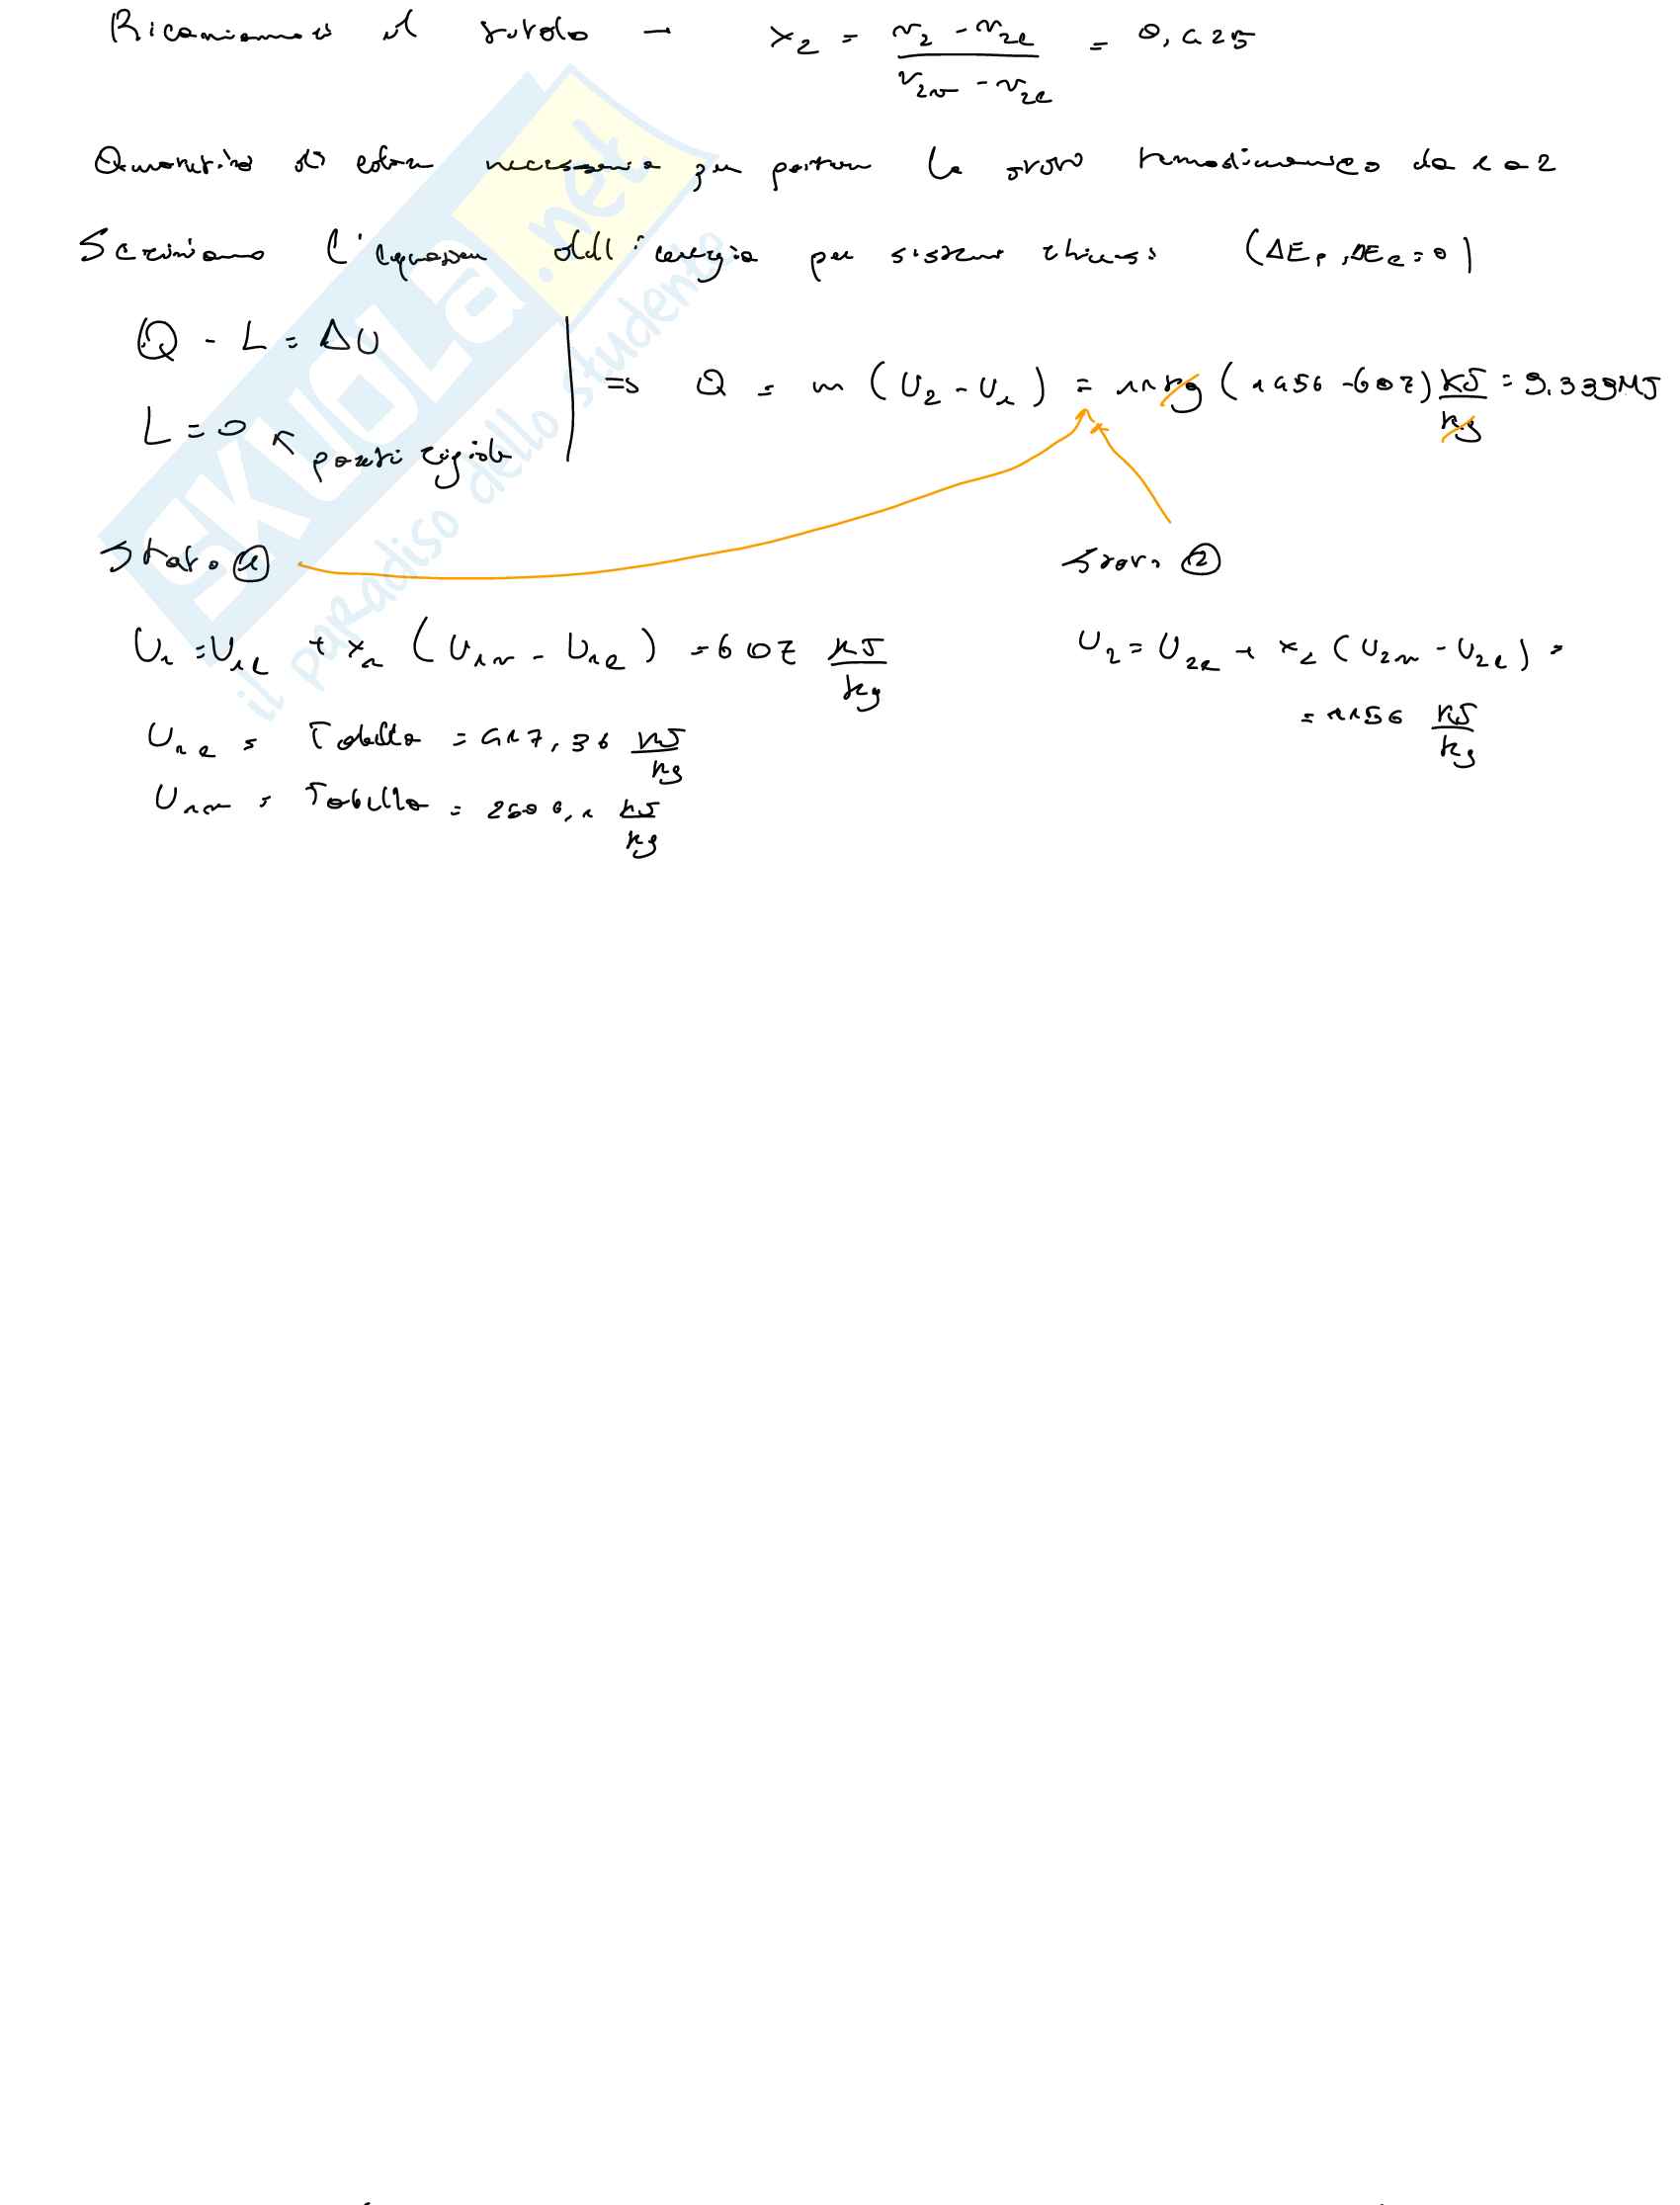 Ricaviamoci il titolo → x₂ = (v₂ - v₂ₗ) / (v₂ᵥ - v₂ₗ) = 0,425
Quantità di calore necessaria per portare lo stato termodinamico da 1 a 2
Scriviamo l'equazione dell'energia per sistemi chiusi (ΔEp, ΔEc = 0)
Q - L = ΔU
L = 0 ↖ pareti rigide
⇒ Q = m (U₂ - U₁) = 11 kg (1456 - 607) kJ/kg = 9.339 MJ
Stato ①
Stato ②
U₁ = U₁ₗ + x₁ (U₁ᵥ - U₁ₗ) = 607 kJ/kg
U₂ = U₂ₗ + x₂ (U₂ᵥ - U₂ₗ) =
= 1156 kJ/kg
U₁ₗ = Tabella = 417,36 kJ/kg
U₁ᵥ = Tabella = 2506,1 kJ/kg
SKUOLa.net
il paradiso dello studente